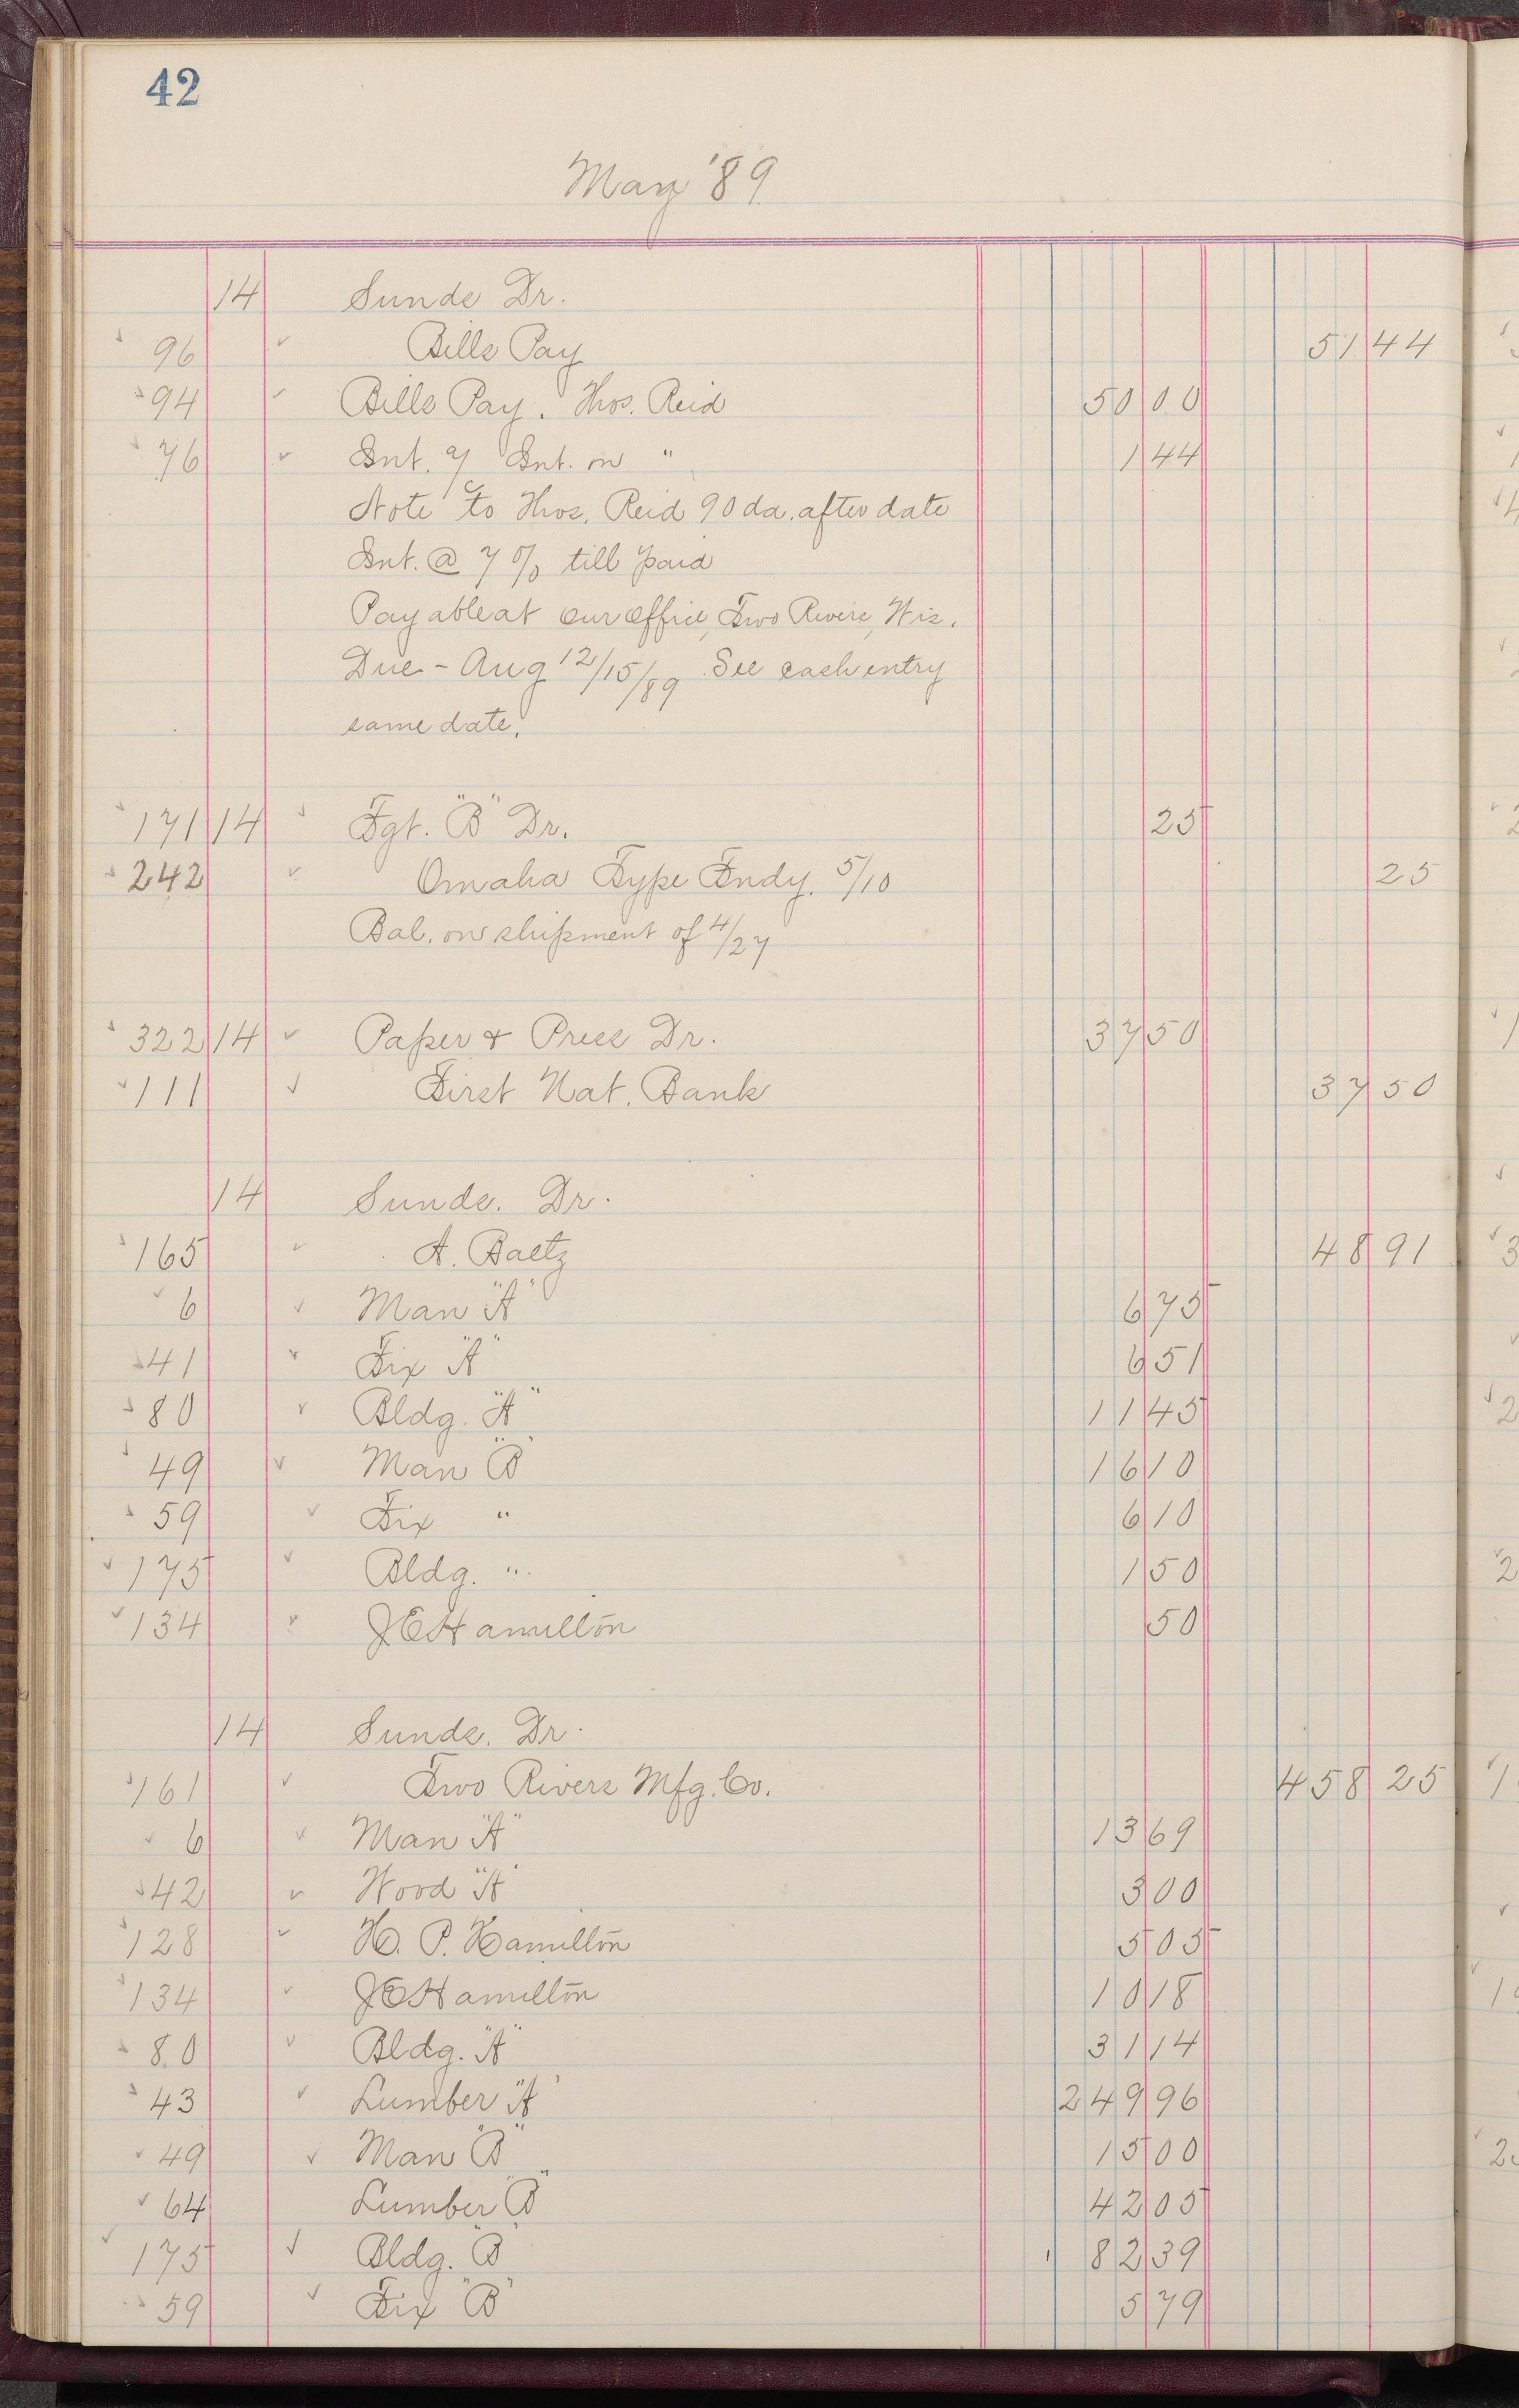 42
May '89
14 Sunds Dr.
96 Bills Pay 51 44
94 Bills Pay. Thos. Reid 50 00
76 Int. % Int. on " 1 44
Note to Thos. Reid 90 da. after date
Int. @ 7 % till paid
Payable at our office, Two Rivers, Wis.
Due - Aug 12/15/89 See cash entry
same date.
171 14 Fgt. "B" Dr. 25
242 Omaha Type Fndy. 5/10 25
Bal. on shipment of 4/27
322 14 Paper & Press Dr. 37 50
111 First Nat. Bank 37 50
14 Sunds. Dr.
165 A. Baetz 48 91
6 Man "A" 6 75
41 Fix "A" 6 51
80 Bldg. "A" 11 45
49 Man "B" 16 10
59 Fix " 6 10
175 Bldg. " 1 50
134 J E Hamilton 50
14 Sunds. Dr.
161 Two Rivers Mfg. Co. 458 25
6 Man "A" 13 69
42 Wood "A" 3 00
128 H. P. Hamilton 5 05
134 J E Hamilton 10 18
80 Bldg. "A" 31 14
43 Lumber "A" 249 96
49 Man "B" 15 00
64 Lumber "B" 42 05
175 Bldg. "B" 82 39
59 Fix "B" 5 79